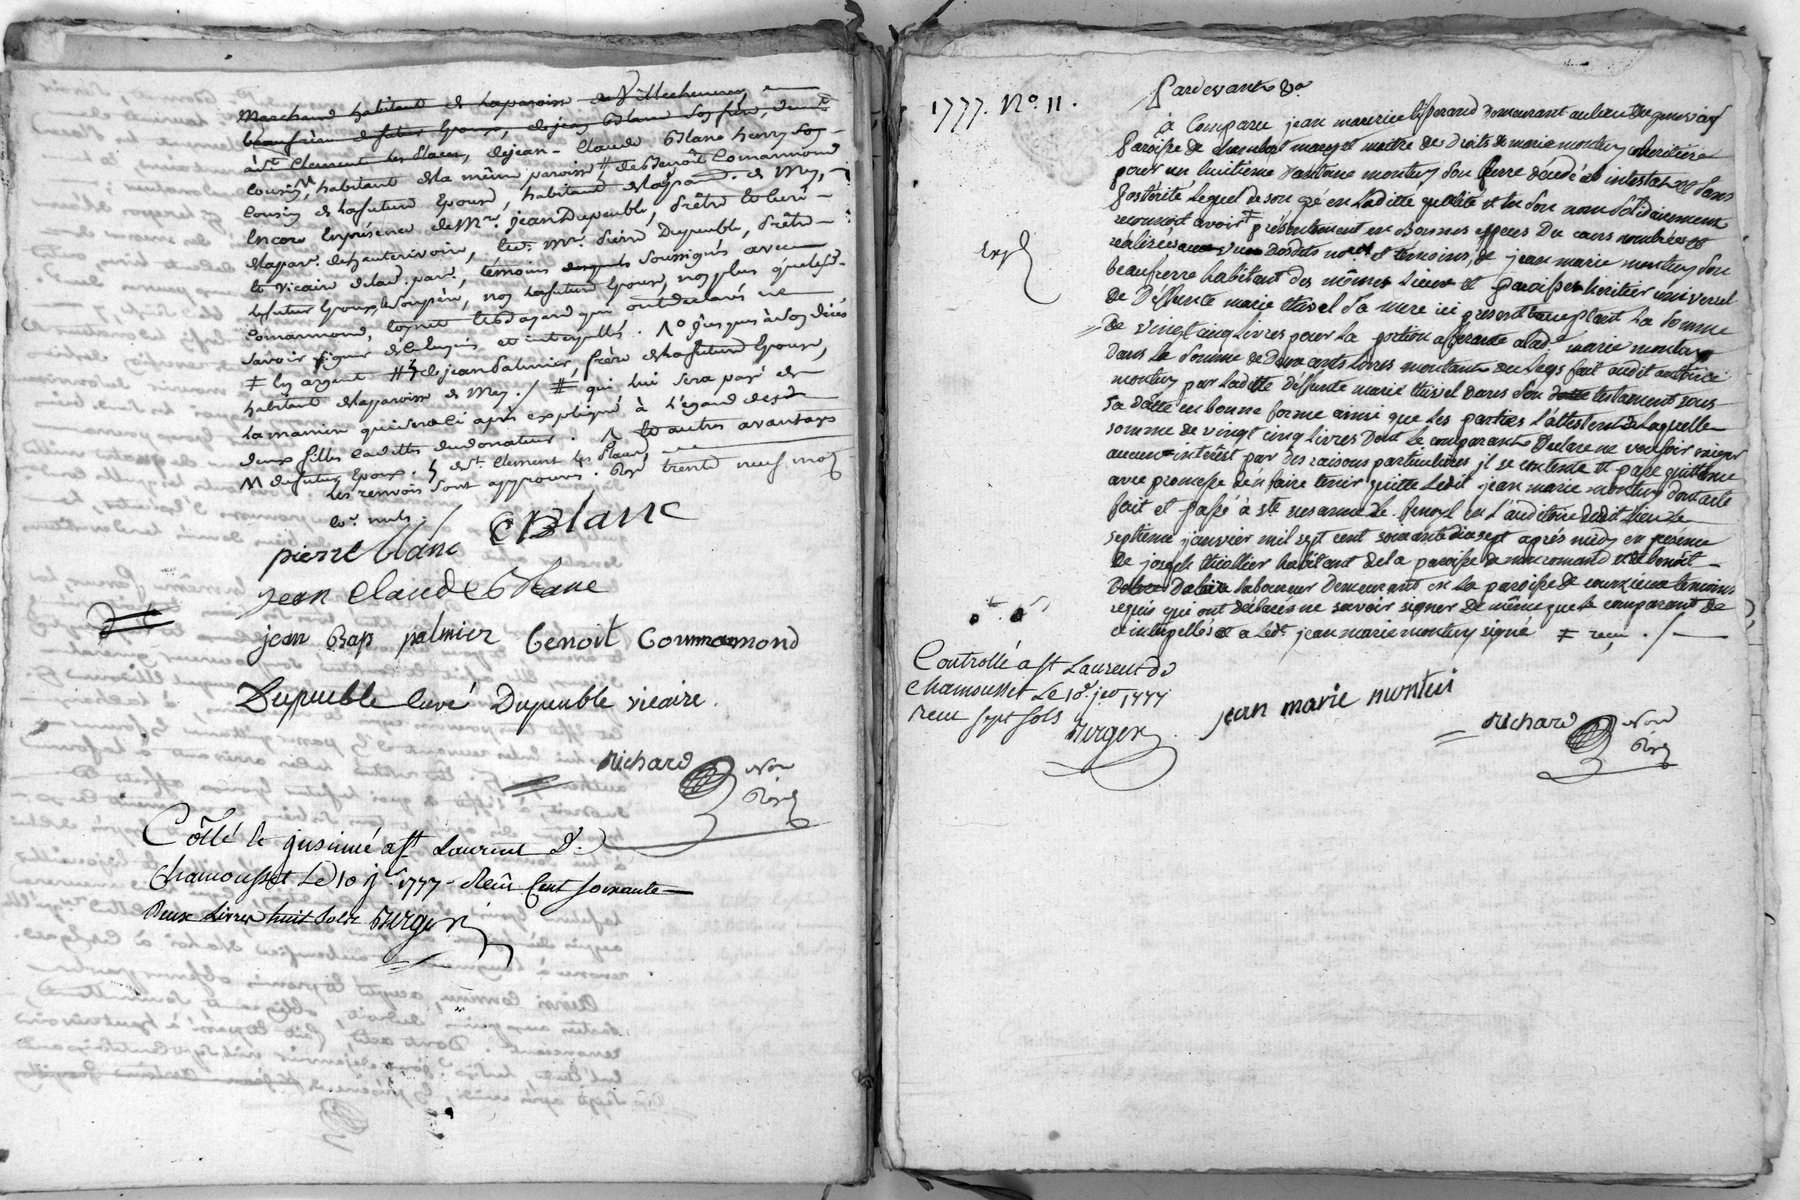 Marchand habitant de la paroisse de Villechenevey, et
beaufrère du futur Epoux, de jean Blanc son frère, demt
à St Clement les Places, de jean-Claude Blanc henry son
cousin M, habitant de la même paroisse # de Benoit Comarmond
Cousin de la future Epouse, habitant de la par. de Mey,
Encore En présence de Mr. jean Dupeuble, Prêtre et Curé
de la par. d'hauterivoire, et Mr. Pierre Dupeuble, Prêtre
et vicaire de lad. par., témoins soussignés avec
le futur Epoux, et son père, non la future Epouse, non plus que led.
Comarmond, qui ont déclarés ne
savoir signer de ce Enquis et interpellés. jusques à son décès
# En argent # de jean Palmier, frère de la future Epouse,
habitant de la paroisse de Mey ./ # qui lui sera payé de
la maniere qui sera ci après expliqué à l'égard des
deux filles cadettes du donateur. et autres avantages
M du futur Epoux. de St. Clement les Places,
les renvois sont approuvés. Rayé trente neuf mots
et. nuls ./ CBlanc
pierre blanc
jean Claude Blanc
jean Bap palmier Benoit Commarmond
Dupeuble curé Dupeuble vicaire.
Richard Nore
Royal
Côllé et jnsinué a St Laurent D.
Chamousset Le 10 jer 1777 - Reçu Cent soixante
Deux Livres huit sols Berger
1777. No. 11.
Pardevant &a
à Comparu jean maurice demeurant au lieu de
paroisse de chambost mary et maitre de Droits de marie montuy coheritiere
pour un huitieme d'antoine montuy son frere décédé ab intestat et sans
postérité Lequel de son gré en Laditte qualité et en son nom solidairement
reconnoit avoir ≠ présentement en bonnes especes Du cours nombrées et
réalisées a vue Desdits nores et témoins, de jean marie montuy son
beaufrerre habitant des mêmes Lieux et paroisse heritier universel
de Deffunte marie thivel sa mere ici present acceptant La somme
de vingt cinq Livres pour la portion afferante a lad. marie montuy
dans la somme de Deux cents Livres montant du Legs fait audit antoine
montuy par laditte deffunte marie thivel dans son testament sous
sa datte en bonne forme ainsi que les parties l'attestent de laquelle
somme de vingt cinq Livres Dont le comparant Declare ne vouloir exiger
aucun interest par des raisons particulieres il se contente et passe quittance
avec promesse d'en faire tenir quitte Ledit jean marie montuy dont acte
fait et passé à ste anne de fenoyl en l'auditoire dudit Lieu Le
septieme janvier mil sept cent soixante dix sept après midy en presence
de joseph thiollier habitant de la paroisse de maringes et de benoit
Dalaire laboureur Demeurant en La paroisse de courzieux temoins
requis qui ont declarés ne savoir signer de même que le comparant de
ce interpellés et a Ledt. jean marie montuy signé ≠ reçu ./
Controllé a St Laurent De
Chamousset Le 10e. jer 1777
Reçu sept sols
Berger
jean marie montui
Richard Nore
Royal